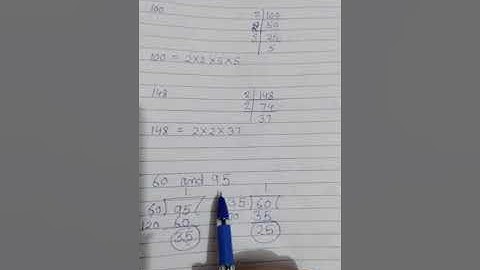 100
2 | 100
2 | 50
5 | 25
5
100 = 2×2×5×5
148
2 | 148
2 | 74
37
148 = 2×2×37
60 and 95
1 1
60) 95 ( 35) 60 (
120 60 35
35 25